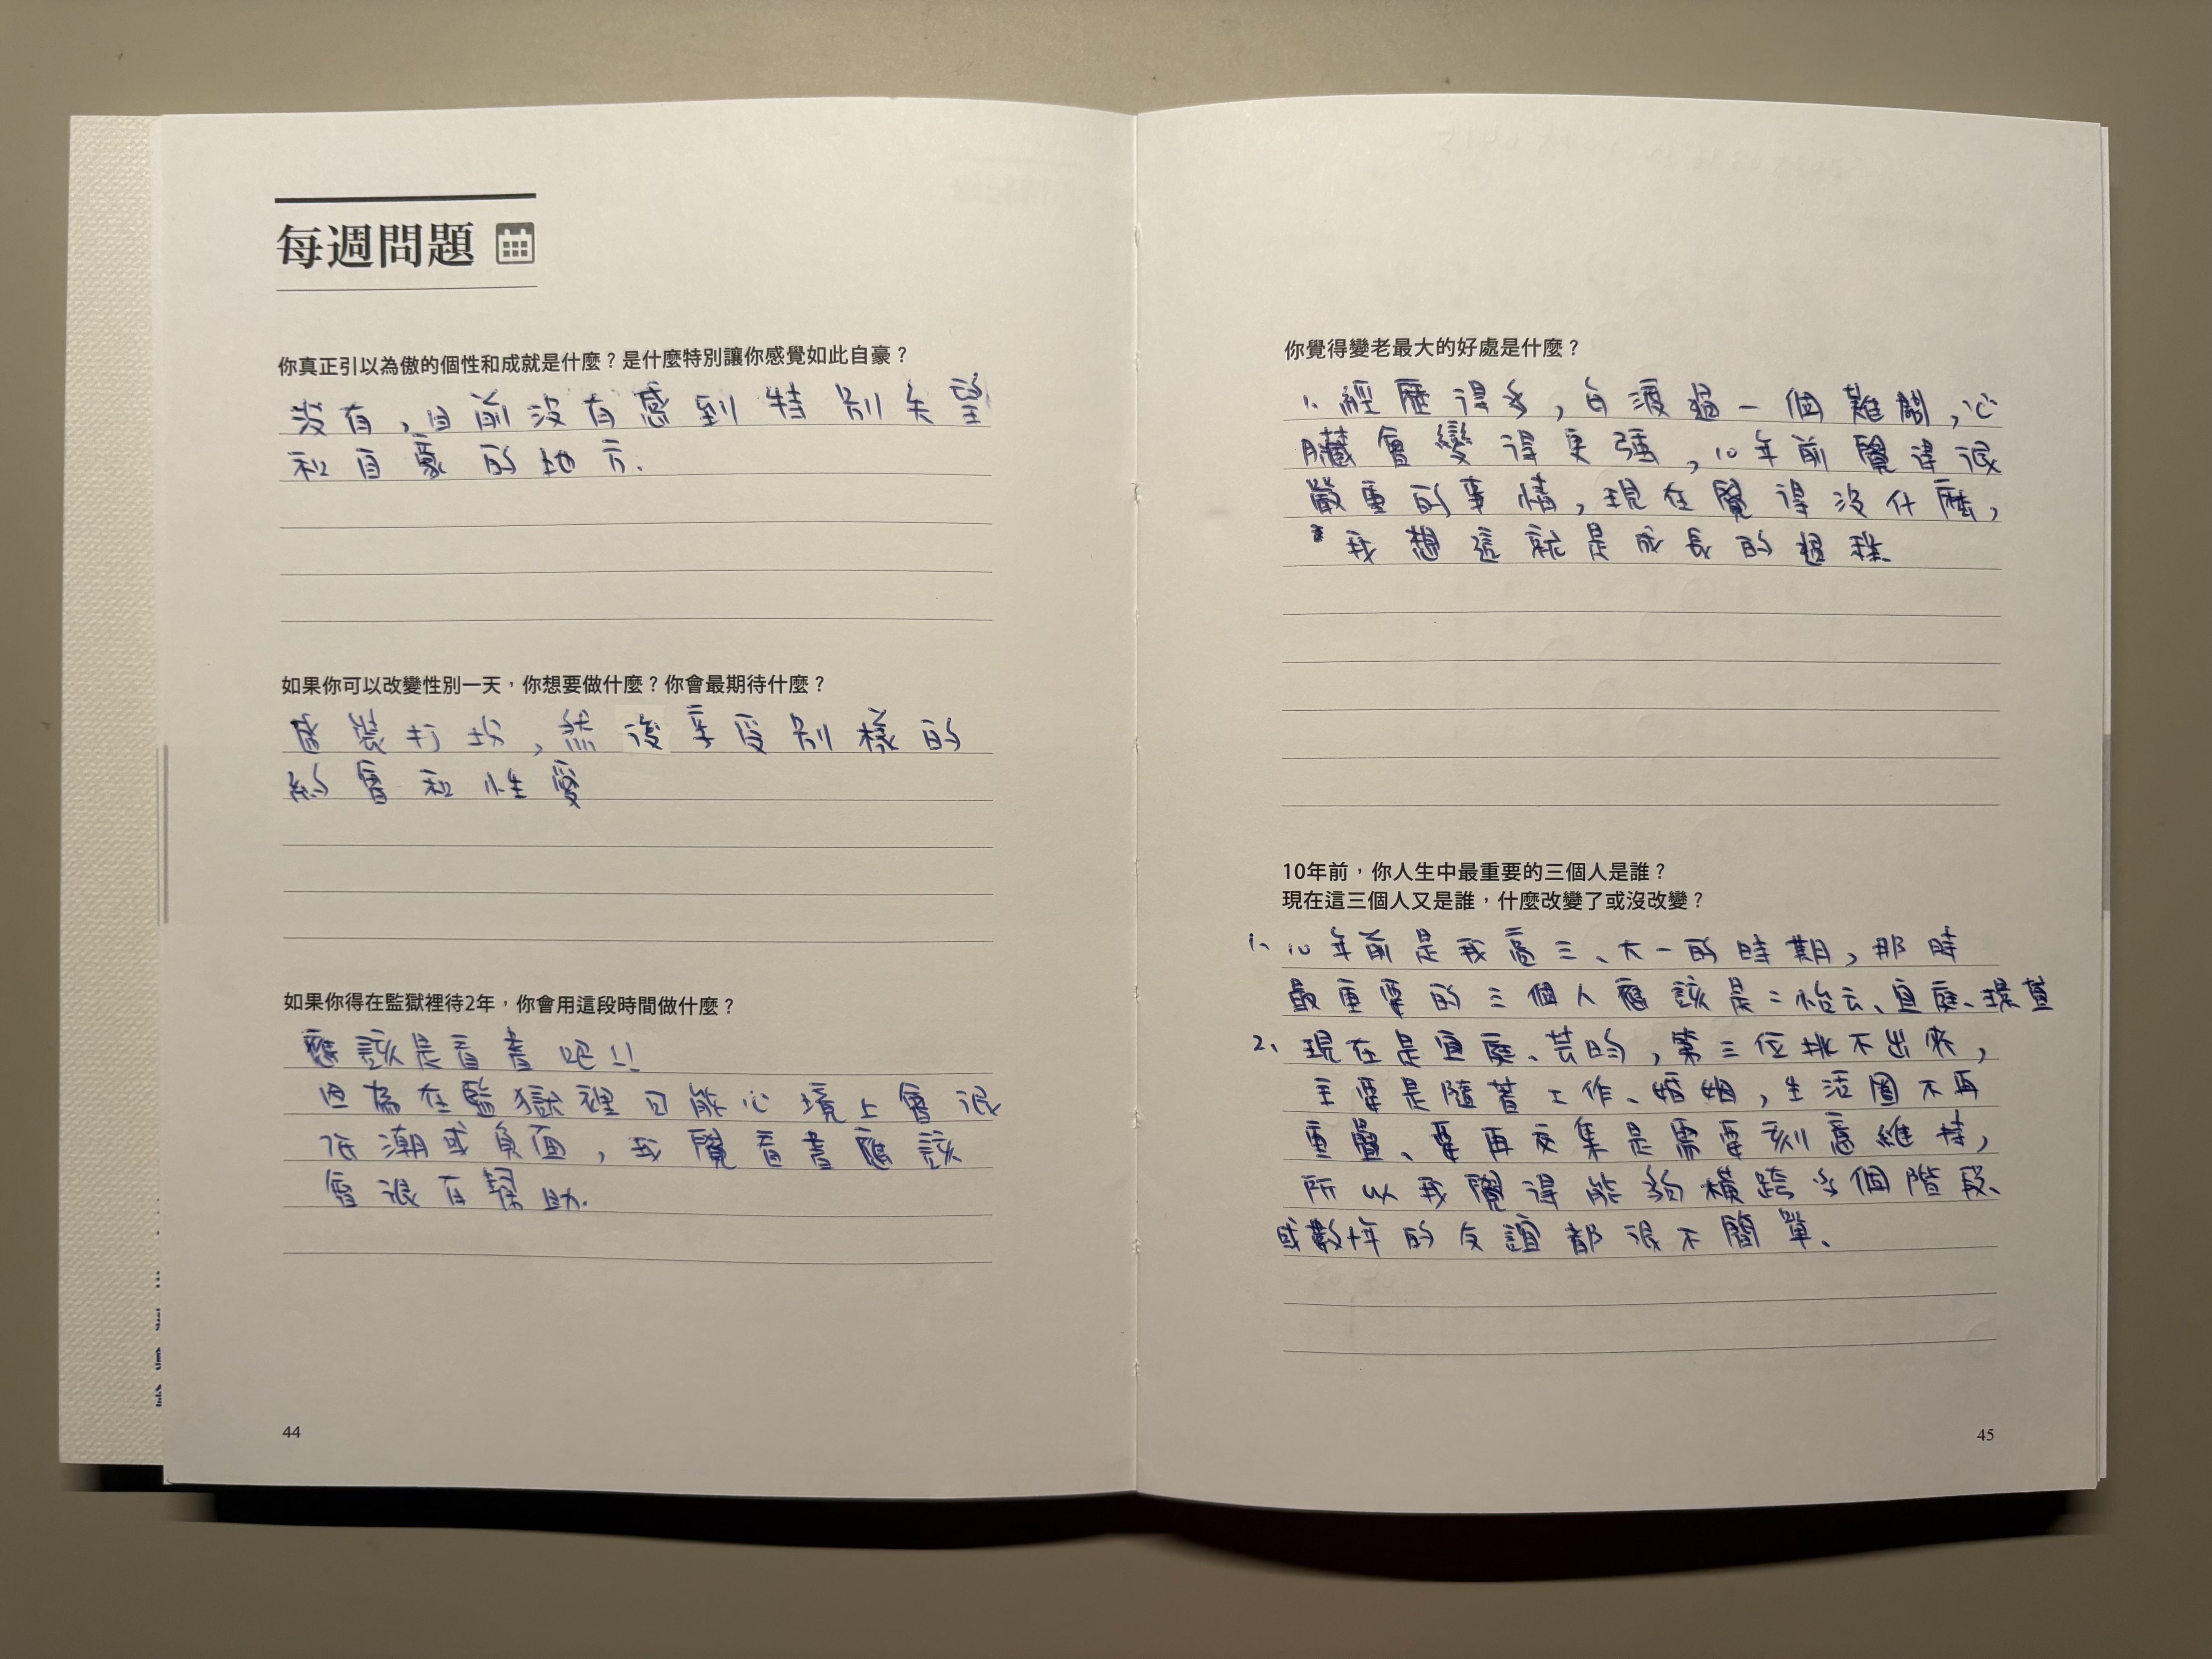 每週問題
你真正引以為傲的個性和成就是什麼？是什麼特別讓你感覺如此自豪？
沒有，目前沒有感到特別失望
和自豪的地方.
如果你可以改變性別一天，你想要做什麼？你會最期待什麼？
盛裝打扮，然後享受別樣的
約會和性愛
如果你得在監獄裡待2年，你會用這段時間做什麼？
應該是看書吧!!
因為在監獄裡可能心境上會很
低潮或負面，我覺看書應該
會很有幫助.
44
你覺得變老最大的好處是什麼？
1、經歷得多，每渡過一個難關，心
臟會變得更強，10年前覺得很
嚴重的事情，現在覺得沒什麼，
我想這就是成長的過程.
10年前，你人生中最重要的三個人是誰？
現在這三個人又是誰，什麼改變了或沒改變？
1、10年前是我高三、大一的時期，那時
最重要的三個人應該是：怡云、宜庭、
2、現在是宜庭、芸昀，第三位挑不出來，
主要是隨著工作、婚姻，生活圈不再
重疊、要再交集是需要刻意維持，
所以我覺得能夠橫跨多個階段、
或數十年的友誼都很不簡單、
45